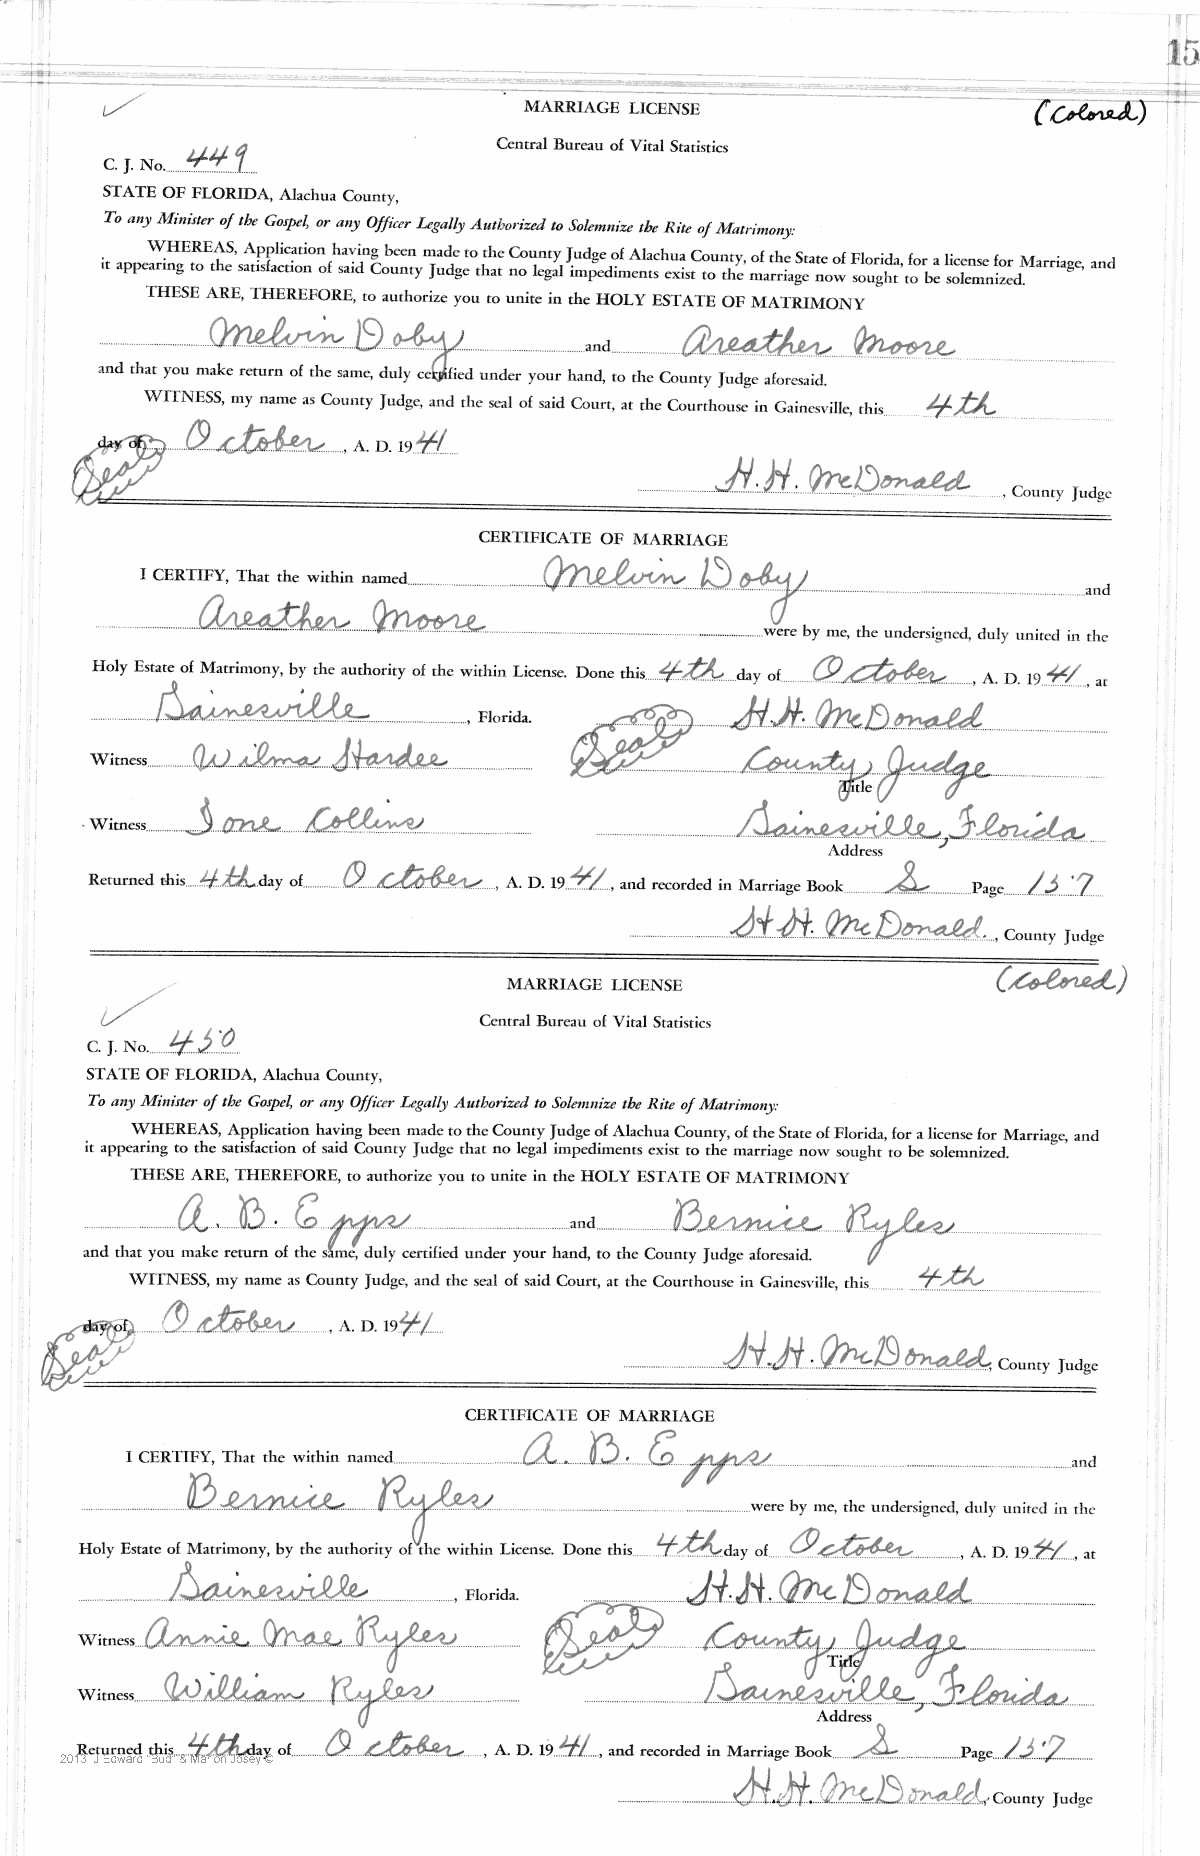 15
MARRIAGE LICENSE
(Colored)
Central Bureau of Vital Statistics
C. J. No. 449
STATE OF FLORIDA, Alachua County,
To any Minister of the Gospel, or any Officer Legally Authorized to Solemnize the Rite of Matrimony:
WHEREAS, Application having been made to the County Judge of Alachua County, of the State of Florida, for a license for Marriage, and
it appearing to the satisfaction of said County Judge that no legal impediments exist to the marriage now sought to be solemnized.
THESE ARE, THEREFORE, to authorize you to unite in the HOLY ESTATE OF MATRIMONY
Melvin Doby and Areather Moore
and that you make return of the same, duly certified under your hand, to the County Judge aforesaid.
WITNESS, my name as County Judge, and the seal of said Court, at the Courthouse in Gainesville, this 4th
day of October, A. D. 1941
Seal
H. H. McDonald, County Judge
CERTIFICATE OF MARRIAGE
I CERTIFY, That the within named Melvin Doby and
Areather Moore were by me, the undersigned, duly united in the
Holy Estate of Matrimony, by the authority of the within License. Done this 4th day of October, A. D. 1941, at
Gainesville, Florida. Seal H. H. McDonald
Witness Wilma Hardee County Judge
Title
Witness Ione Collins Gainesville, Florida
Address
Returned this 4th day of October, A. D. 1941, and recorded in Marriage Book S Page 157
H. H. McDonald., County Judge
MARRIAGE LICENSE
(Colored)
Central Bureau of Vital Statistics
C. J. No. 450
STATE OF FLORIDA, Alachua County,
To any Minister of the Gospel, or any Officer Legally Authorized to Solemnize the Rite of Matrimony:
WHEREAS, Application having been made to the County Judge of Alachua County, of the State of Florida, for a license for Marriage, and
it appearing to the satisfaction of said County Judge that no legal impediments exist to the marriage now sought to be solemnized.
THESE ARE, THEREFORE, to authorize you to unite in the HOLY ESTATE OF MATRIMONY
A. B. Epps and Bernice Ryles
and that you make return of the same, duly certified under your hand, to the County Judge aforesaid.
WITNESS, my name as County Judge, and the seal of said Court, at the Courthouse in Gainesville, this 4th
day of October, A. D. 1941
Seal
H. H. McDonald, County Judge
CERTIFICATE OF MARRIAGE
I CERTIFY, That the within named A. B. Epps and
Bernice Ryles were by me, the undersigned, duly united in the
Holy Estate of Matrimony, by the authority of the within License. Done this 4th day of October, A. D. 1941, at
Gainesville, Florida. H. H. McDonald
Witness Annie Mae Ryles Seal County Judge
Title
Witness William Ryles Gainesville, Florida
Address
Returned this 4th day of October, A. D. 1941, and recorded in Marriage Book S Page 157
2013 J Edward "Bud" & Marion Josey ©
H. H. McDonald, County Judge